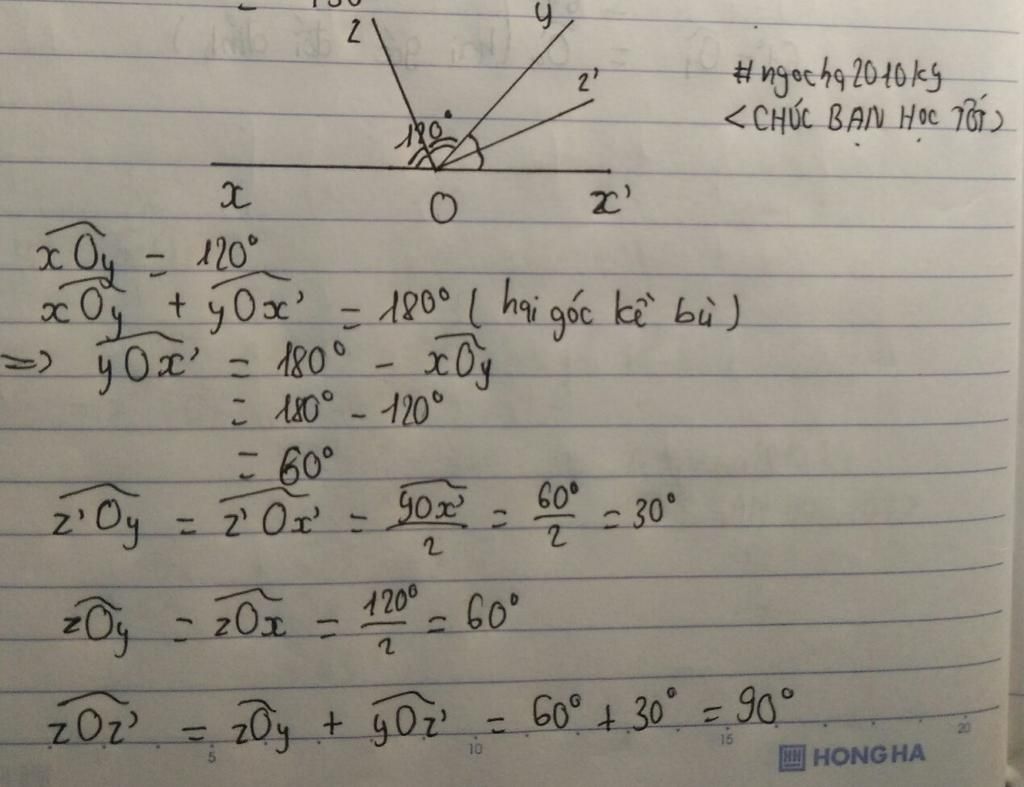 z
y
z'
120°
x
O
x'
#ngocha2010kg
<CHÚC BẠN HỌC TỐT>
xOy = 120°
xOy + yOx' = 180° (hai góc kề bù)
=> yOx' = 180° - xOy
= 180° - 120°
= 60°
z'Oy = z'Ox' = yOx'/2 = 60°/2 = 30°
zOy = zOx = 120°/2 = 60°
zOz' = zOy + yOz' = 60° + 30° = 90°
5 10 15 20
HONG HA